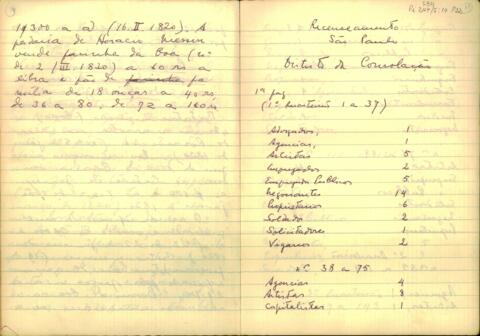 19300 a a) (16.II.1820). A
padaria de Horacio Messeri
vende farinha da Boa (10
de 2/III/1820) a 60 rs a
libra e pão de farinha fa
milia de 18 onças a 40 rs,
de 36 a 80, de 72 a 160 rs
SMH
Pi 244/5.10 P22
Recenseamento
São Paulo
Distrito da Consolação
1ª pag
(1º quarteirão 1 a 37)
Advogados, 1
Agencias, 1
Artistas 5
Empregados 2
Empregados Publicos 5
Negociantes 14
Proprietarios 6
Soldado 2
Solicitadores 1
Vagarios 2
nº 38 a 75
Agencias 4
Artistas 8
Capitalistas 1